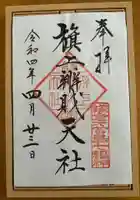 奉拝
旗上辨財天社
令和四年四月廿三日